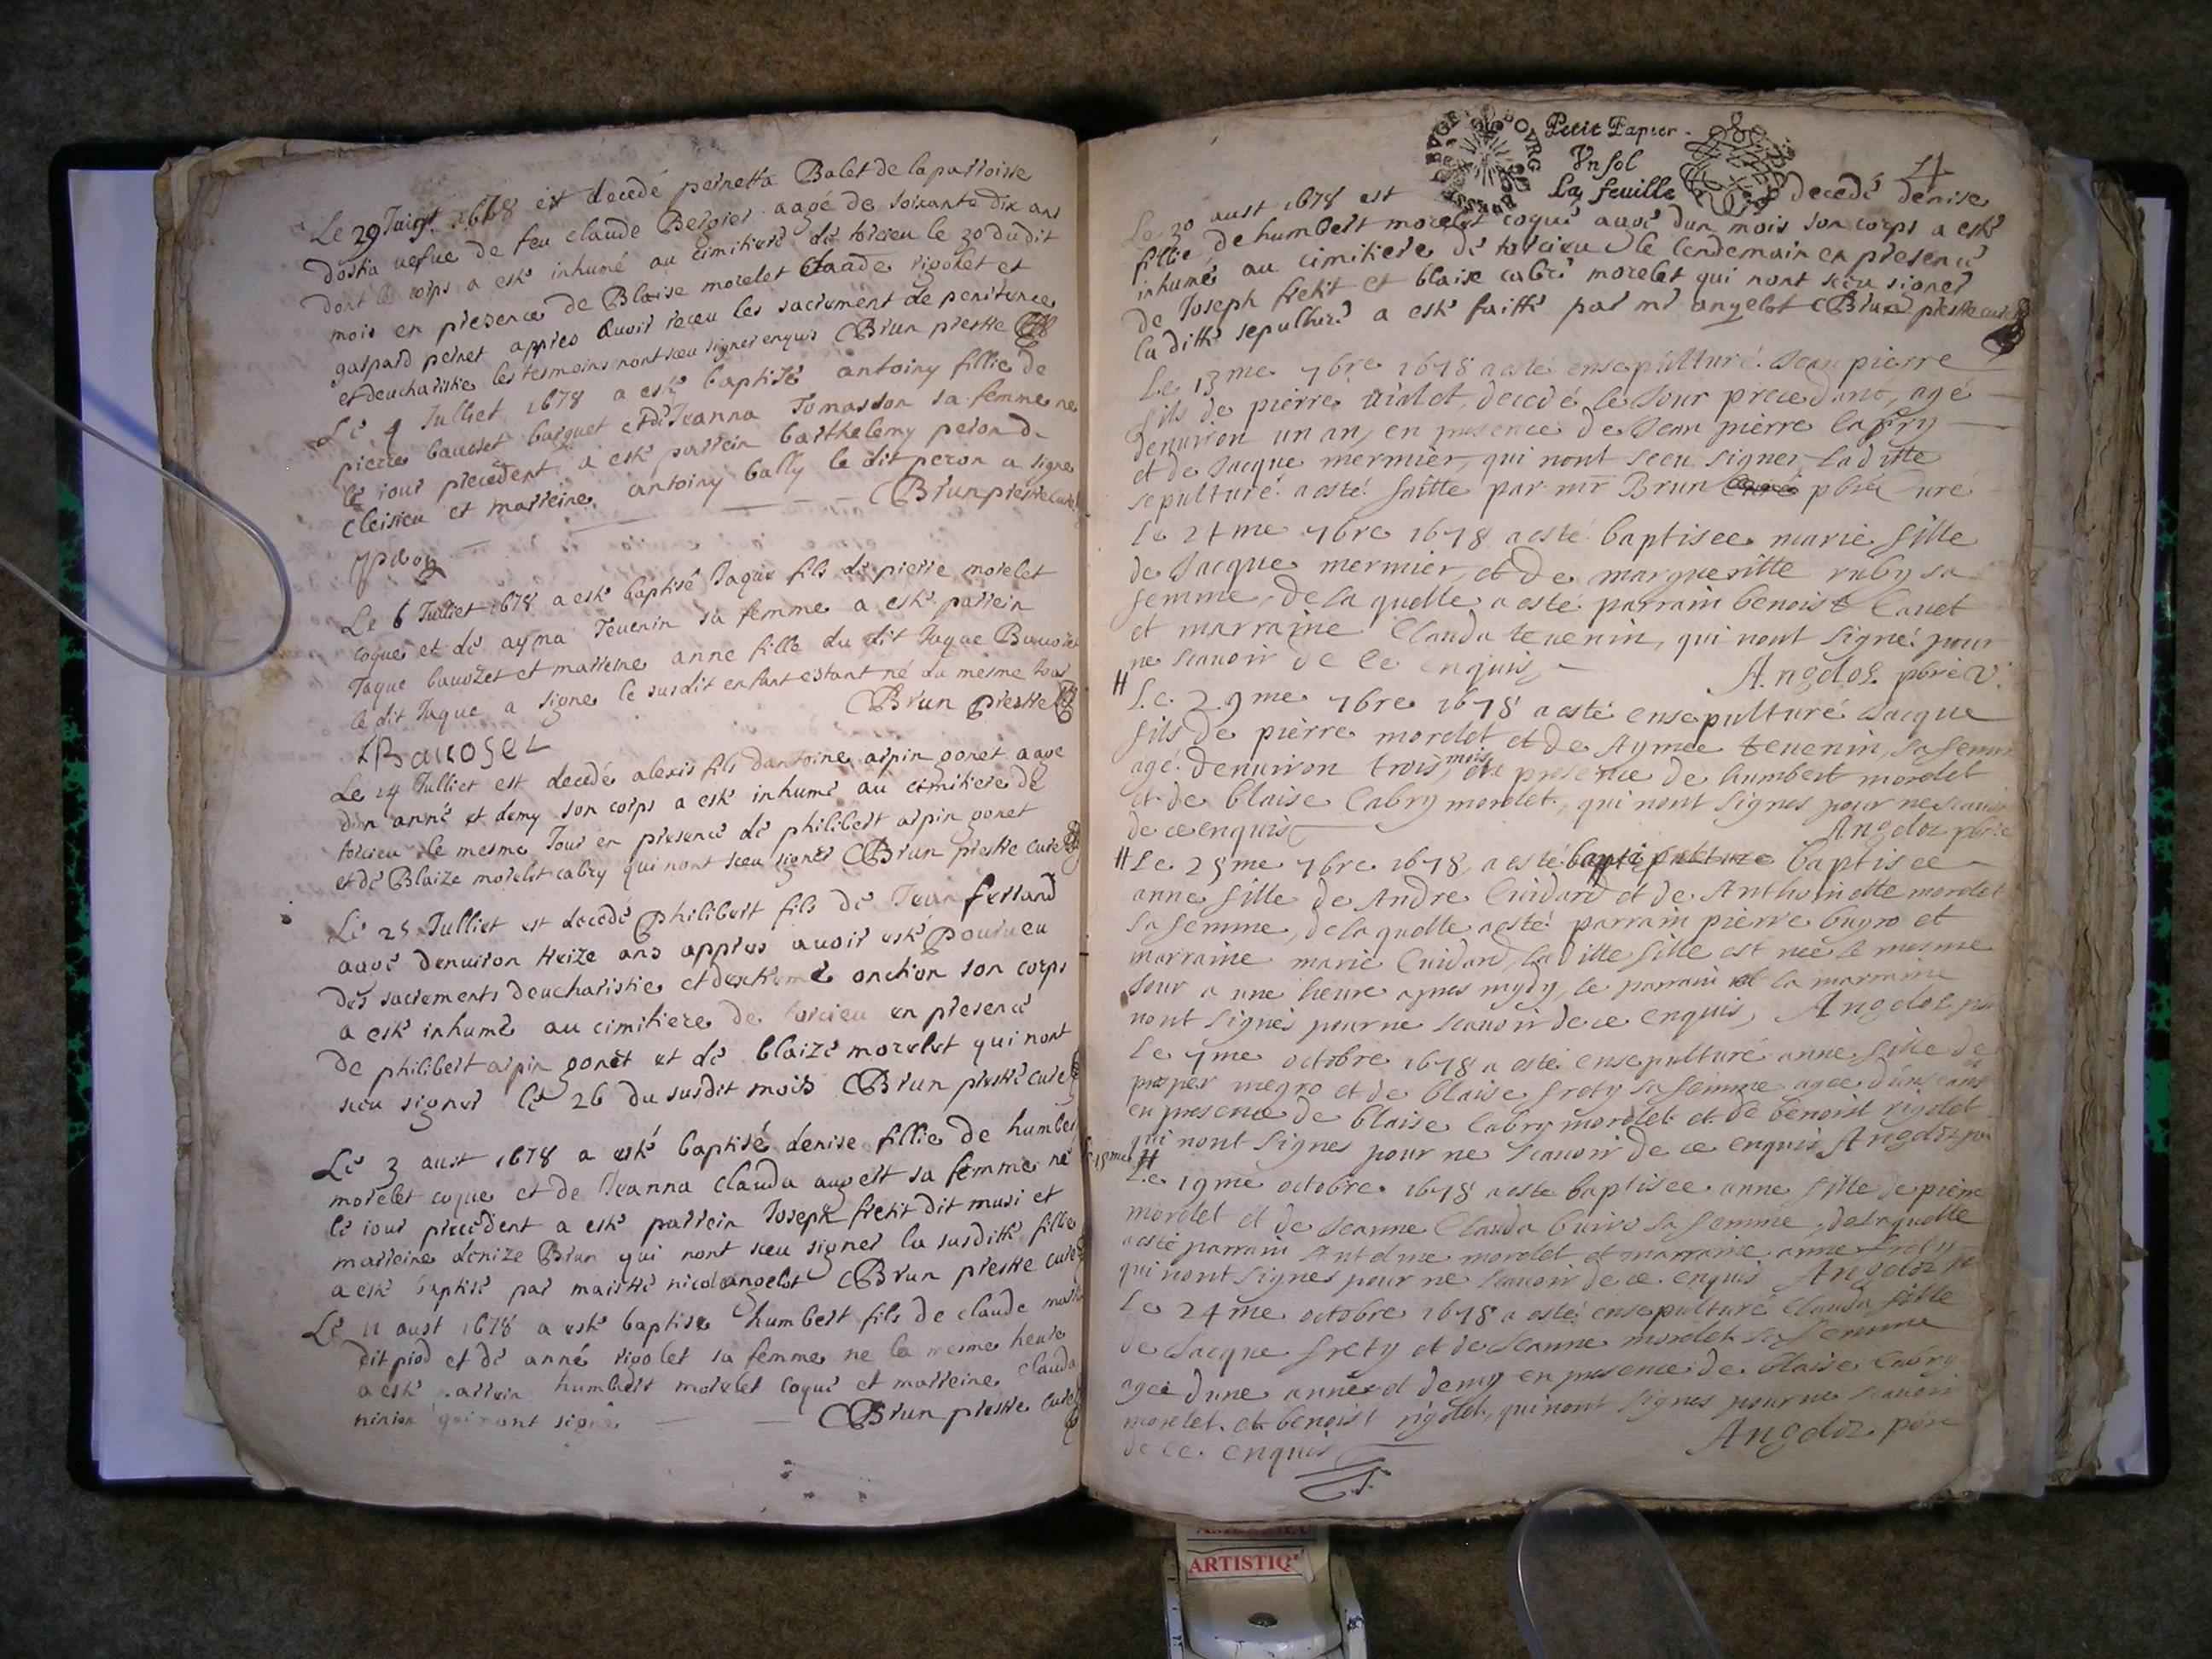 Le 29 1678 est decedé pernetta Balet de la parroisse
dostia vefve de feu claude Bergier aagé de soixante dix ans
dont le corps a esté inhumé au cimitiere de torcieu le 30 dudit
mois en presence de Blaise morelet Claude rigolet et
gaspard pernet appres avoir receu les sacrement de penitence
et deucharistie les tesmoins nont sceu signer enquis Brun prestre
Le 4 Julliet 1678 a esté baptisé antoiny fillie de
pierre bauoset burquet et de Jeanna Tomasson sa femme ne
le iour precedent a esté parrein barthelemy peron de
cleisieu et marreine antoiny bally le dit peron a signe
Brun prestre cure
Le 6 Julliet 1678 a esté baptisé Jaque fils de pierre morelet
coque et de ayma Teuenin sa femme a esté parrein
Jaque bauozet et marreine anne fille du dit Jaque
le dit Jaque a signe le susdit enfant estant né du mesme iour
Brun prestre
J Bauoset
Le 14 Julliet est decedé alexis fils dantoine arpin gonet aagé
dun anné et demy son corps a esté inhumé au cimitiere de
torcieu le mesme Jour en presence de philibert arpin gonet
et de Blaize morelet cabry qui nont sceu signer Brun prestre curé
Le 25 Julliet est decedé philibert fils de Jean ferrand
aagé denuiron treize ans appres auoir esté pourueu
des sacrements deucharistie et dextreme onction son corps
a esté inhumé au cimitiere de torcieu en presence
de philibert arpin gonet et de blaize morelet qui nont
sceu signer le 26 du susdit mois Brun prestre curé
Le 3 aust 1678 a esté baptisé denise fillie de humbert
morelet coque et de Jeanna clauda augert sa femme né
le iour precedent a esté parrein Joseph fretit dit musi et
marreine denize Brun qui nont sceu signer la susditte fillie
a esté baptisé par maistre nicol angelot Brun prestre curé
Le 11 aust 1678 a esté baptisé humbert fils de claude
dit piod et de anné rigolet sa femme ne la mesme heure
a esté parrein humbert morelet coque et marreine clauda
qui nont signé Brun prestre curé
BVGEI BOVRG
Petit Papier
Vn sol
La feuille
4
Le 30 aust 1678 est decedé denise
fillie de humbert morelet coque aagé dun mois son corps a esté
inhumé au cimitiere de torcieu le lendemain en presence
de Joseph fretit et blaise cabri morelet qui nont sceu signer
la ditte sepulture a esté faitte par mr angelot Brun prestre curé
Le 13me 7bre 1678 a esté ensepulturé Jean pierre
fils de pierre uialet, decedé le Jour precedent, agé
denuiron un an, en presence de Jean pierre cabry
et de Jacque mermier, qui nont sceu signer, laditte
sepulture a esté faitte par mr Brun pbre curé
Le 24me 7bre 1678 a esté baptisee marie fille
de Jacque mermier, et de margueritte ruby sa
femme, de la quelle a esté parrain benoist Cauet
et marraine Clauda teuenin, qui nont signé pour
ne scauoir de ce enquis
Angeloz pbre v.
Le 29me 7bre 1678 a esté ensepulturé Jacque
fils de pierre morelet et de Aymée teuenin, sa femme
agé denuiron trois mois en presence de humbert morelet
et de blaise Cabry morelet, qui nont signes pour ne scauoir
de ce enquis
Angeloz pbre
Le 25me 7bre 1678, a esté baptisee
anne fille de Andre Cuidard et de Anthoinette morelet
sa femme, de la quelle a esté parrain pierre buyro et
marraine marie Cuidard, laditte fille est née le mesme
Jour a une heure apres mydy, le parrain et la marraine
nont signés pour ne scauoir de ce enquis, Angeloz
Le 7me octobre 1678 a esté ensepulturé anne fille de
prosper megro et de blaise frety sa femme agee
en presence de blaise Cabry morelet et de benoist rigolet
qui nont signes pour ne scauoir de ce enquis Angeloz
Le 19me octobre 1678 a esté baptisee anne fille de pierre
morelet et de Jeanne Clauda buiro sa femme, de laquelle
a esté parrain Antelme morelet et marraine anne frety
qui nont signes pour ne scauoir de ce enquis Angeloz
Le 24me octobre 1678 a esté ensepulturé Clauda fille
de Jacque frety et de Jeanne morelet sa femme
agee dune année et demy en presence de blaise Cabry
morelet et benoist rigolet, qui nont signes pour ne scauoir
de ce enquis
Angeloz pbre
ARTISTIQ